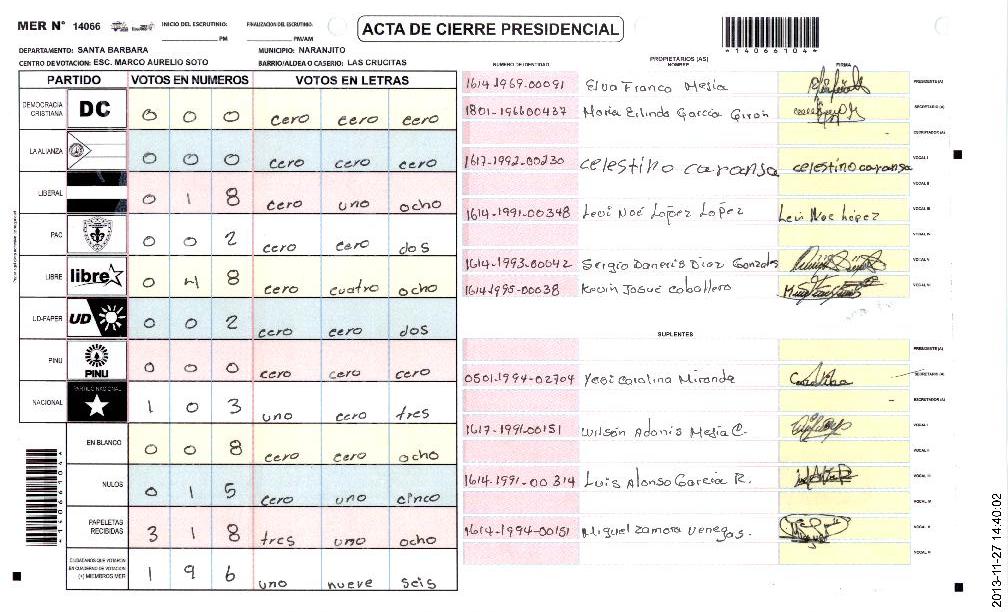 MER N° 14066
INICIO DEL ESCRUTINIO:
PM
FINALIZACION DEL ESCRUTINIO:
PM/AM
ACTA DE CIERRE PRESIDENCIAL
*14066104*
DEPARTAMENTO: SANTA BARBARA
MUNICIPIO: NARANJITO
CENTRO DE VOTACION: ESC. MARCO AURELIO SOTO
BARRIO/ALDEA O CASERIO: LAS CRUCITAS
PARTIDO VOTOS EN NUMEROS VOTOS EN LETRAS
DEMOCRACIA CRISTIANA DC 0 0 0 cero cero cero
LA ALIANZA 0 0 0 cero cero cero
LIBERAL 0 1 8 cero uno ocho
PAC 0 0 2 cero cero dos
LIBRE libre 0 4 8 cero cuatro ocho
UD-FAPER UD 0 0 2 cero cero dos
PINU PINU 0 0 0 cero cero cero
NACIONAL PARTIDO NACIONAL 1 0 3 uno cero tres
EN BLANCO 0 0 8 cero cero ocho
NULOS 0 1 5 cero uno cinco
PAPELETAS RECIBIDAS 3 1 8 tres uno ocho
CIUDADANOS QUE VOTARON EN CUADERNO DE VOTACION (+) MIEMBROS MER 1 9 6 uno nueve seis
PROPIETARIOS (AS)
NUMERO DE IDENTIDAD NOMBRE FIRMA
1614-1969-00091 Elva Franco Mesia PRESIDENTE (A)
1801-196600437 Maria Erlinda Garcia Giron SECRETARIO (A)
ESCRUTADOR (A)
1617-1992-00230 celestino caransa celestino caransa VOCAL I
VOCAL II
1614-1991-00348 Levi Noé López López Levi Noe López VOCAL III
VOCAL IV
1614-1993-00042 Sergio Daneris Diaz Gonzales VOCAL V
1614-1995-00038 Kevin Josue Caballero VOCAL VI
SUPLENTES
PRESIDENTE (A)
0501-1994-02704 Yesi Carolina Miranda Carolina SECRETARIO (A)
ESCRUTADOR (A)
1617-1991-00151 Wilson Adonis Mesia C. VOCAL I
VOCAL II
1614-1991-00314 Luis Alonso Garcia R. VOCAL III
VOCAL IV
1614-1994-00151 Miguel Zamora Venegas. VOCAL V
VOCAL VI
*14066104*
2013-11-27 14:40:02